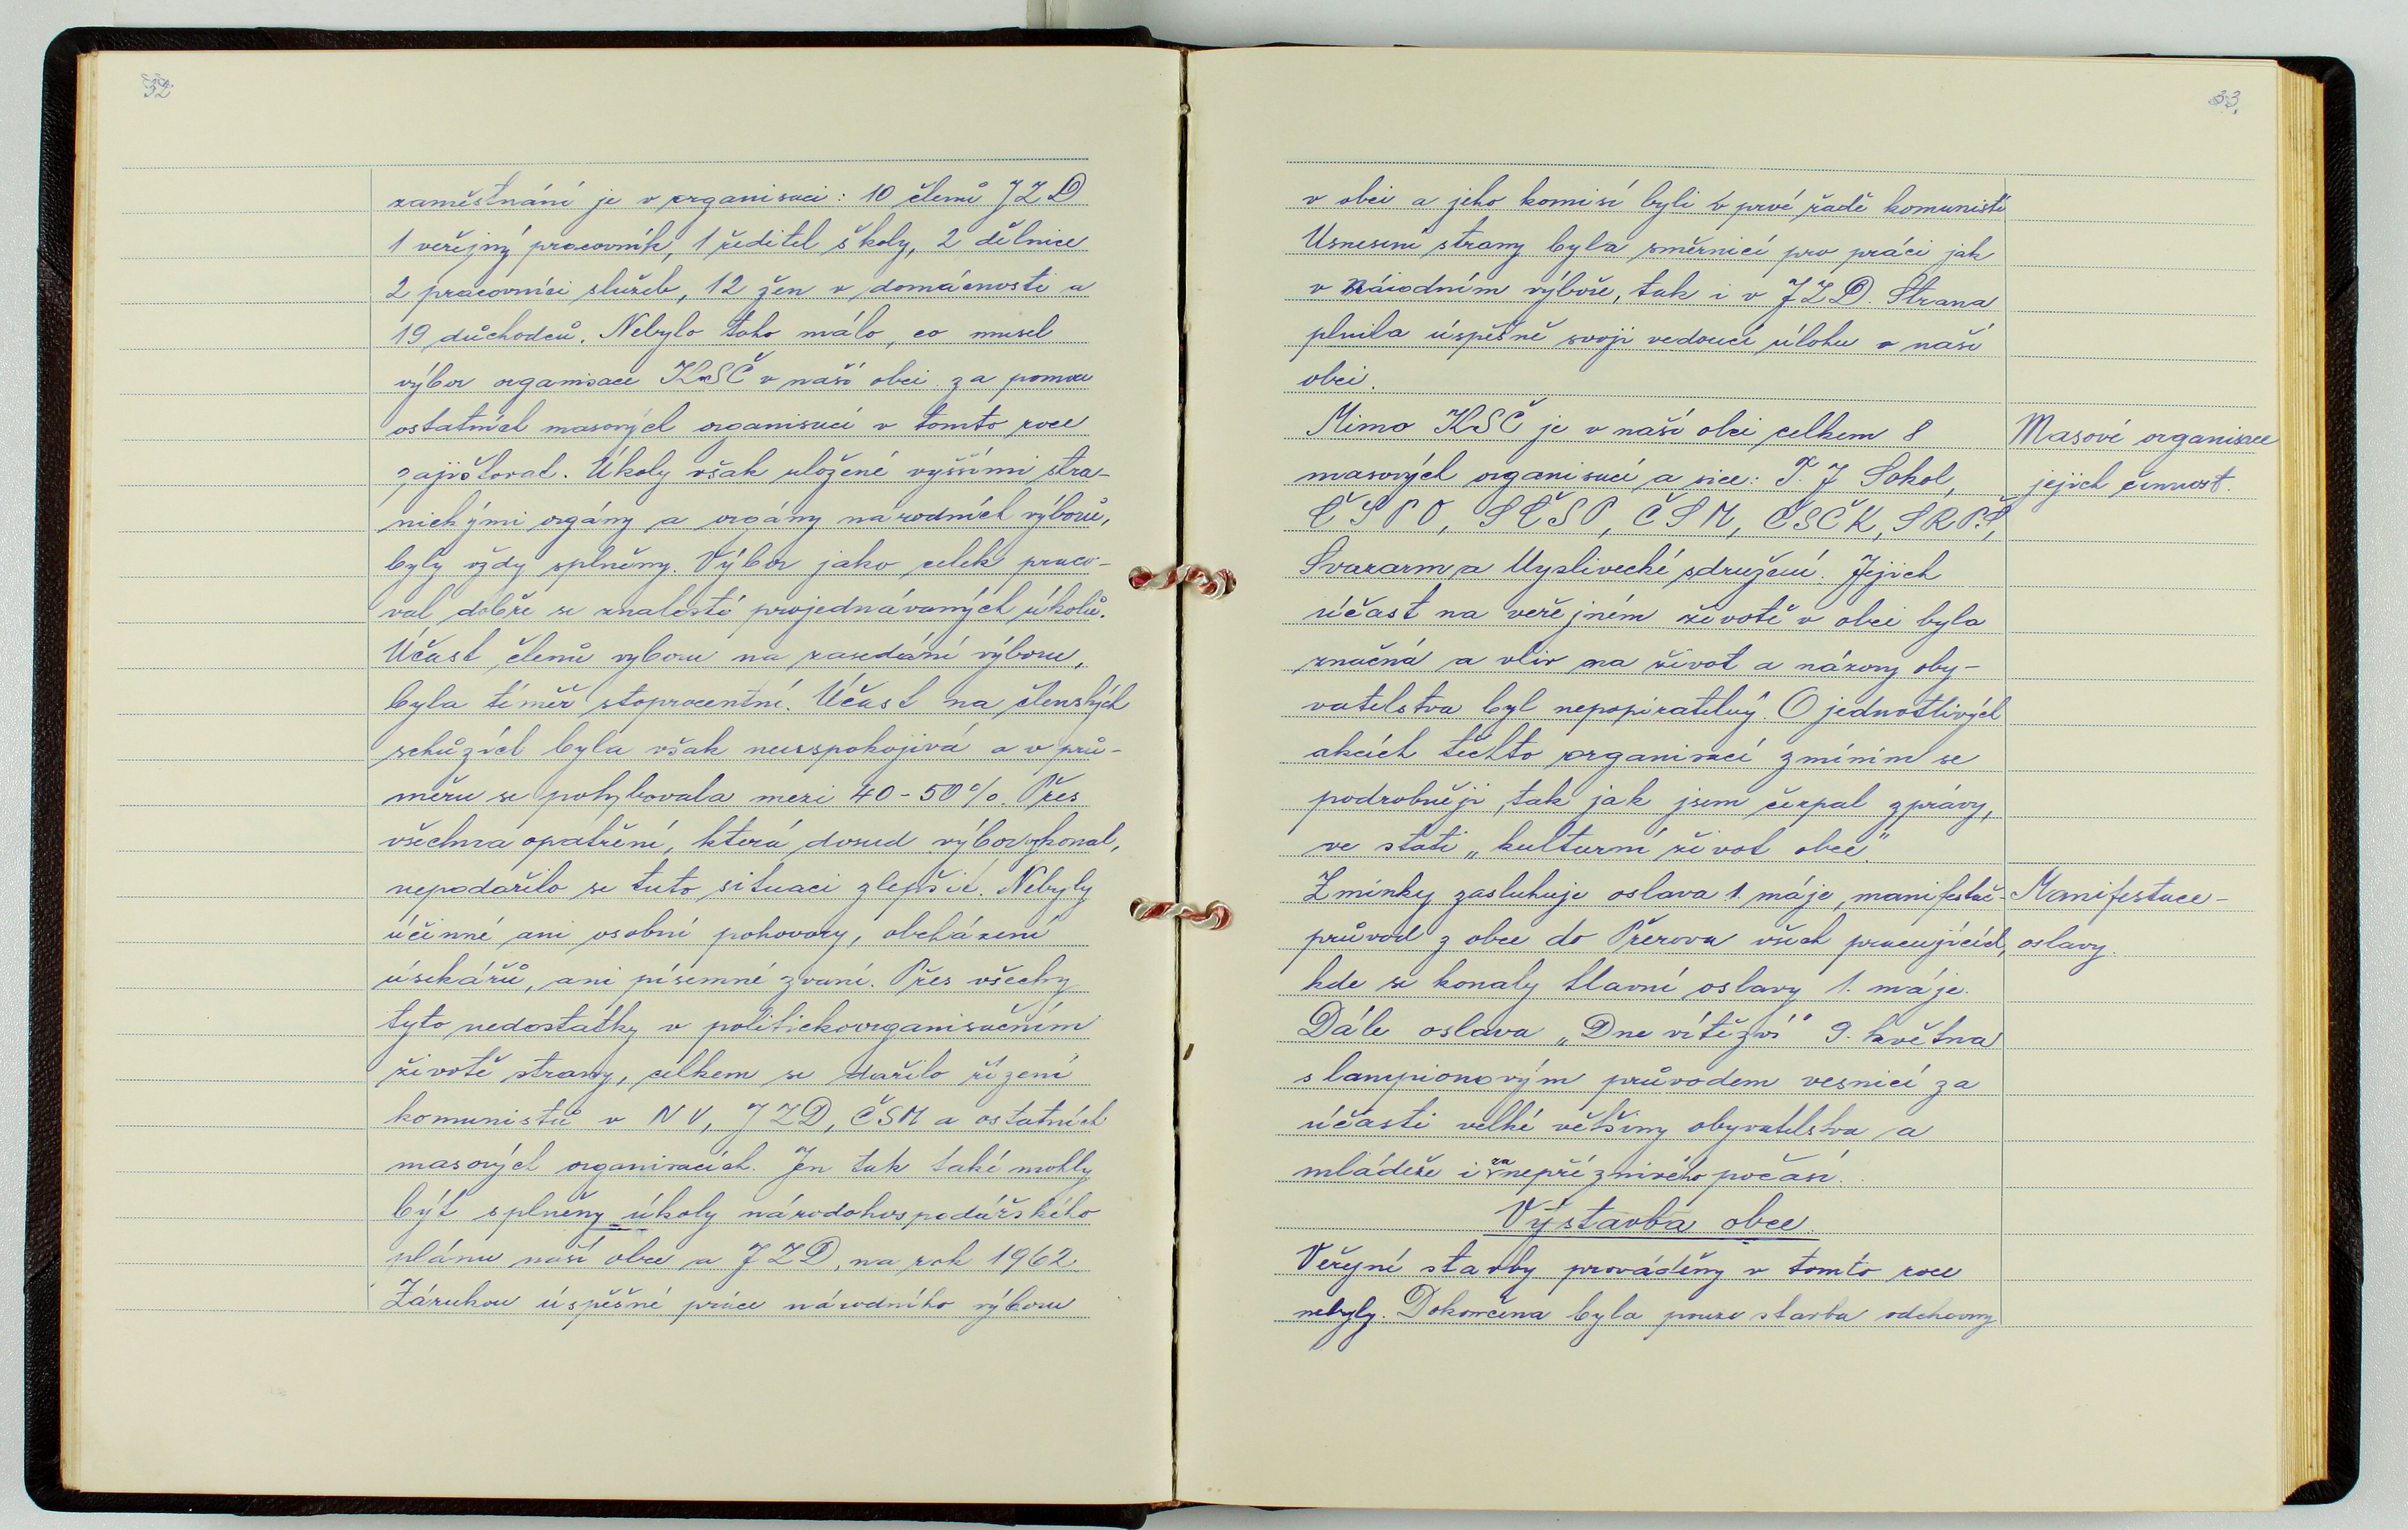 32
zaměstnání je v organisaci: 10 členů JZD
1 veřejný pracovník, 1 ředitel školy, 2 dělnice
2 pracovníci služeb, 12 žen v domácnosti a
19 důchodců. Nebylo toho málo, co musel
výbor organisace KSČ v naší obci za pomoci
ostatních masových organisací v tomto roce
zajišťovat. Úkoly však uložené vyššími stra-
nickými orgány a orgány národních výborů,
byly vždy splněny. Výbor jako celek praco-
val dobře se znalostí projednávaných úkolů.
Účast členů vyboru na zasedání výboru,
byla téměř stoprocentní. Účast na členských
schůzích byla však neuspokojivá a v prů-
měru se pohybovala mezi 40-50%. Přes
všechna opatření, která dosud výbor vykonal,
nepodařilo se tuto situaci zlepšit. Nebyly
účinné ani osobní pohovory, obcházení
úsekářů, ani písemné zvaní. Přes všechny
tyto nedostatky v politickoorganisačním
životě strany, celkem se dařilo řízení
komunistů v NV, JZD, ČSM a ostatních
masových organisacích. Jen tak také mohly
být splněny úkoly národohospodářského
plánu naší obce a JZD, na rok 1962
Zárukou úspěšné práce národního výboru
33.
v obci a jeho komisí byli v prvé řadě komunisté
Usnesení strany byla směrnicí pro práci jak
v národním výboře, tak i v JZD. Strana
plnila úspěšně svoji vedoucí úlohu v naší
obci.
Mimo KSČ je v naší obci celkem 8
masových organisací a sice: T. J Sokol,
ČSPO, SČSP, ČSM, ČSČK, SRPŠ,
Svazarm a Myslivecké sdružení. Jejich
účast na veřejném životě v obci byla
značná a vliv na život a názory oby-
vatelstva byl nepopiratelný. O jednotlivých
akcích těchto organisací zmíním se
podrobněji, tak jak jsem čerpal zprávy,
ve stati „kulturní život obce."
Zmínky zasluhuje oslava 1. máje, manifestač-
průvod z obce do Přerova všech pracujících,
kde se konaly hlavní oslavy 1. máje.
Dále oslava „Dne vítězví" 9. května
s lampionovým průvodem vesnicí za
účasti velké většiny obyvatelstva a
mládeže i za nepříznivého počasí.
Výstavba obce.
Veřejné stavby prováděny v tomto roce
nebyly. Dokončena byla pouze stavba odchovny
Masové organisace
jejich činnost.
Manifestace-
oslavy.